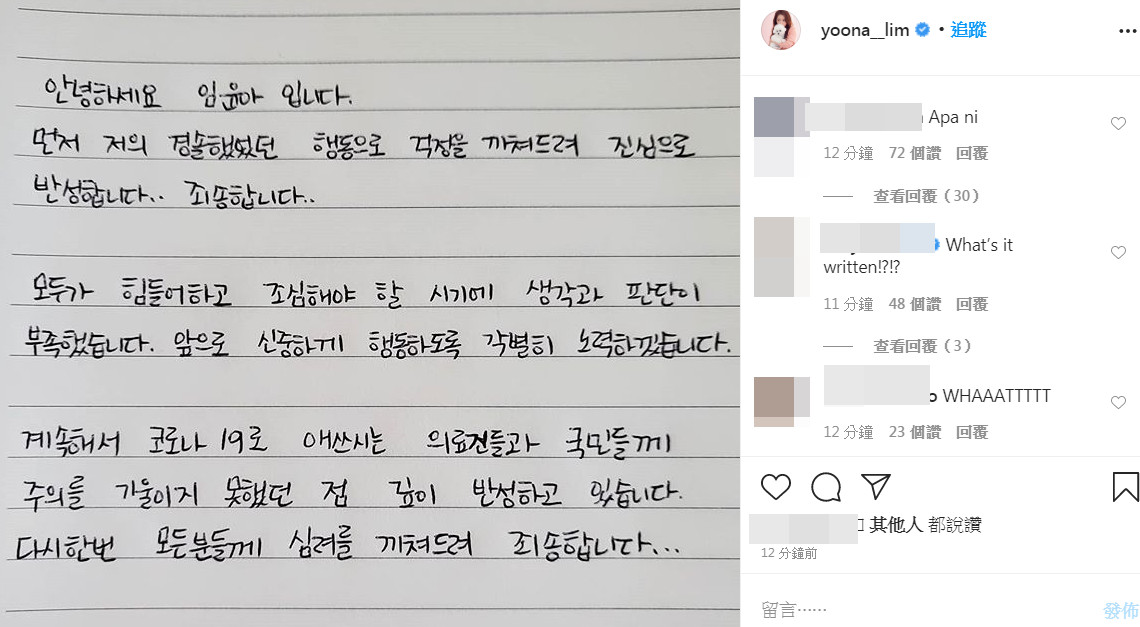 안녕하세요 임윤아 입니다.
먼저 저의 경솔했었던 행동으로 걱정을 끼쳐드려 진심으로
반성합니다.. 죄송합니다..
모두가 힘들어하고 조심해야 할 시기에 생각과 판단이
부족했습니다. 앞으로 신중하게 행동하도록 각별히 노력하겠습니다.
계속해서 코로나 19로 애쓰시는 의료진들과 국민들께
주의를 기울이지 못했던 점 깊이 반성하고 있습니다.
다시한번 모든분들께 심려를 끼쳐드려 죄송합니다...
yoona__lim • 追蹤
Apa ni
12 分鐘 72 個讚 回覆
查看回覆（30）
What's it
written!?!?
11 分鐘 48 個讚 回覆
查看回覆（3）
WHAAATTTTT
12 分鐘 23 個讚 回覆
其他人 都說讚
12 分鐘前
留言……
發佈